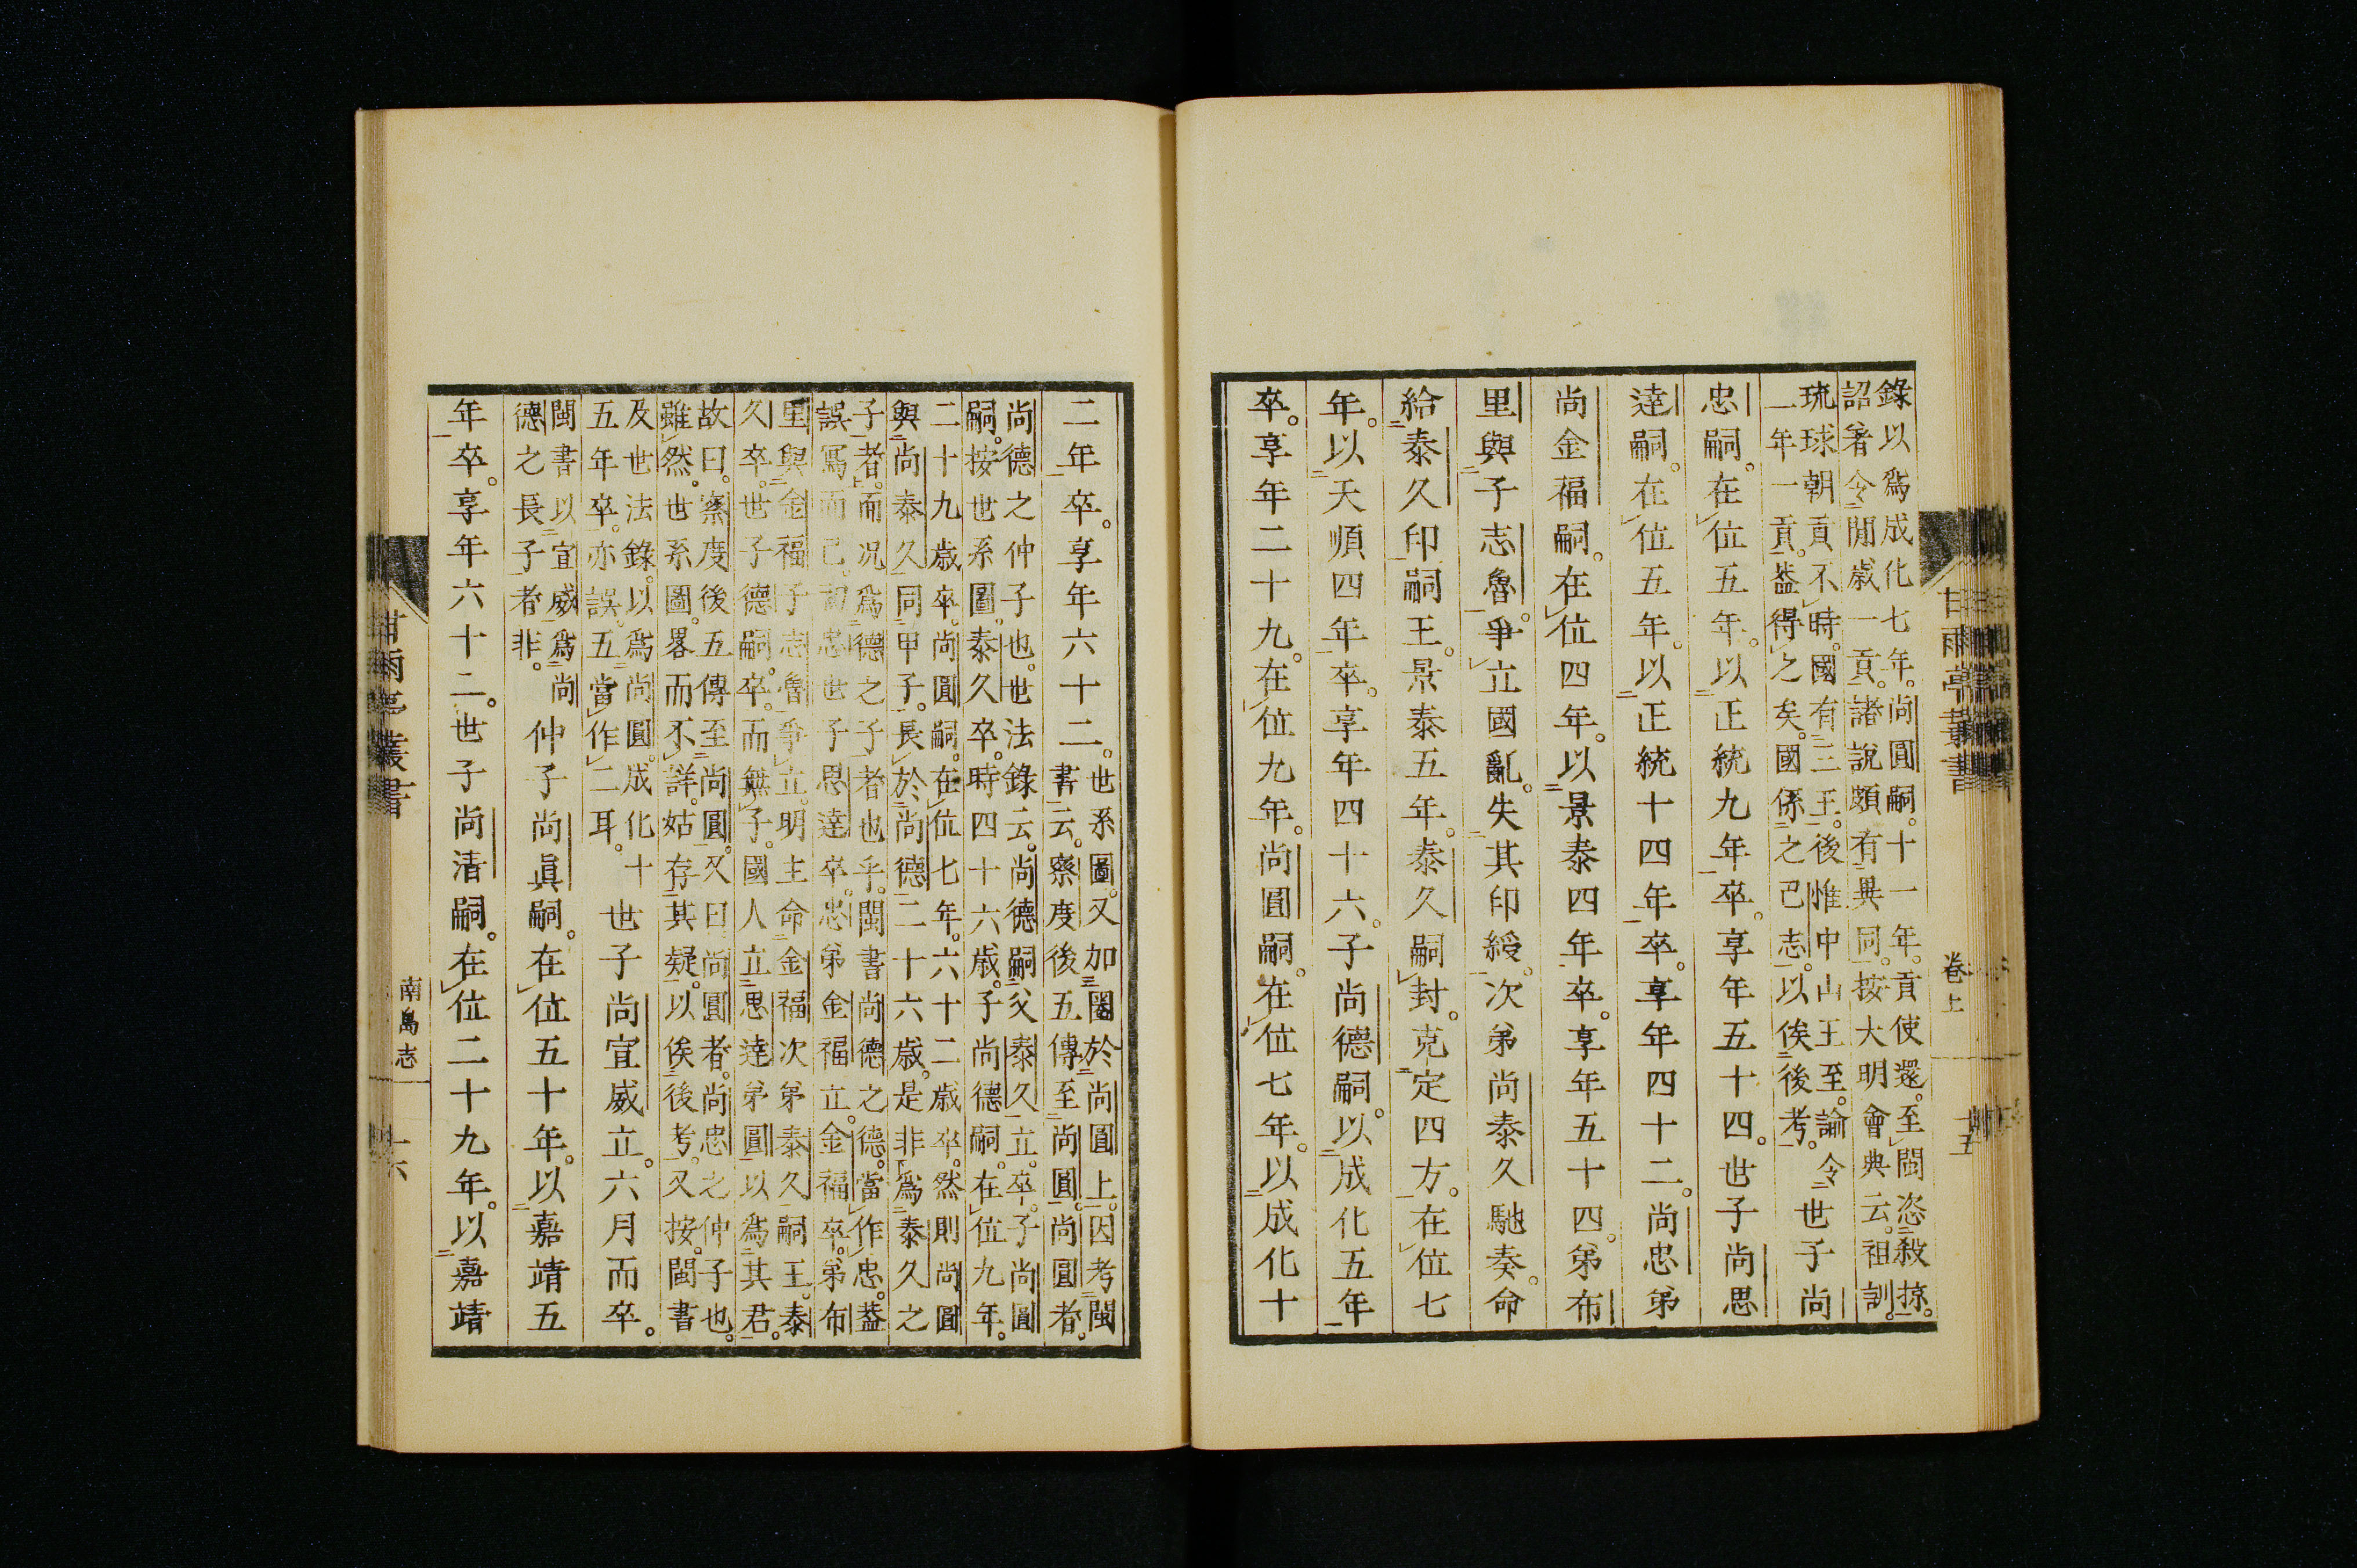 錄以爲成化七年。尚圓嗣。十一年。貢使還。至閩恣殺掠。
詔著令閒歲一貢。諸說頗有異同。按大明會典云。祖訓。
琉球朝貢不時。國有三王。後惟中山王至。諭令
二年一貢。蓋得之矣。國係之已志。以俟後考。
世子尚
忠嗣。在位五年。以正統九年卒。享年五十四。世子尚思
達嗣。在位五年。以正統十四年卒。享年四十二。尚忠弟
尚金福嗣。在位四年。以景泰四年卒。享年五十四。弟布
里與子志魯爭立國亂。失其印綬。次弟尚泰久馳奏。命
給泰久印嗣王。景泰五年。泰久嗣封。克定四方。在位七
年。以天順四年卒。享年四十六。子尚德嗣。以成化五年
卒。享年二十九。在位九年。尚圓嗣。在位七年。以成化十
甘雨亭叢書
卷上
十五
二年卒。享年六十二。
世系圖。又加圈於尚圓上。因考閩
書云。察度後五傳至尚圓。尚圓者。
尚德之仲子也。世法錄云。尚德嗣父泰久立。卒。子尚圓
嗣。按世系圖。泰久卒。時四十六歲。子尚德嗣。在位九年。
二十九歲卒。尚圓嗣。在位七年。六十二歲卒。然則尚圓
與尚泰久同甲子。長於尚德二十六歲。是非爲泰久之
子者。而况爲德之子者也乎。閩書尚德之德。當作忠。蓋
誤寫而已。初忠世子思達卒。忠弟金福立。金福卒。弟布
里與金福子志魯爭立。明主命金福次弟泰久嗣王。泰
久卒。世子德嗣。卒。而無子。國人立思達弟圓以爲其君。
故曰。察度後五傳至尚圓。又曰尚圓者。尚忠之仲子也。
雖然。世系圖。畧而不詳。姑存其疑。以俟後考。又按。閩書
及世法錄。以爲尚圓。成化十
五年卒。亦誤。五當作二耳。
世子尚宣威立。六月而卒。
閩書以宣威爲尚
德之長子者非。
仲子尚眞嗣。在位五十年。以嘉靖五
年卒。享年六十二。世子尚清嗣。在位二十九年。以嘉靖
甘雨亭叢書
南島志
十六